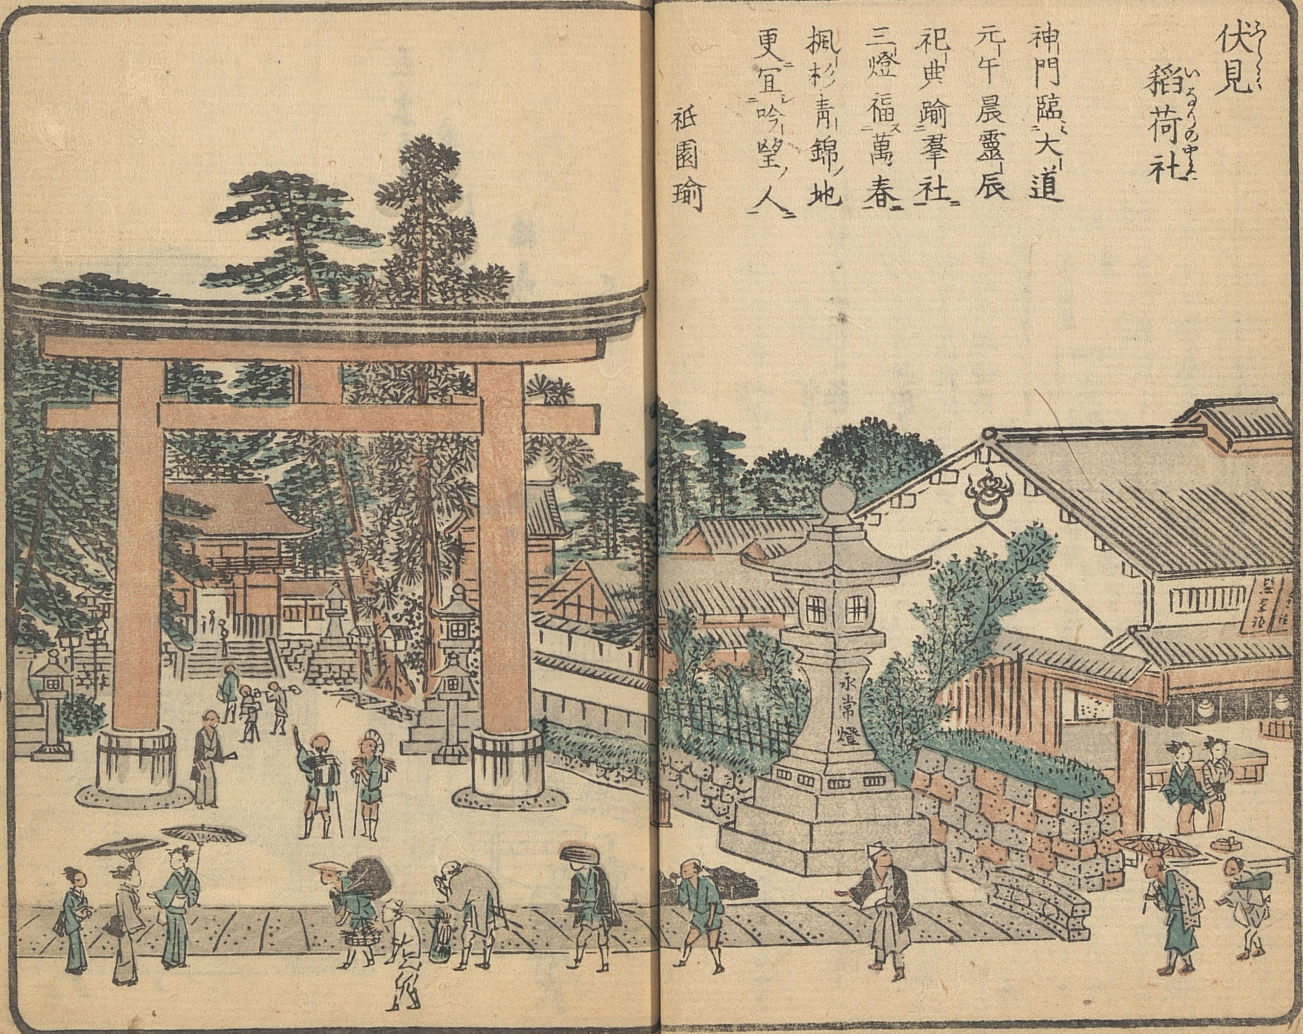 伏見
稲荷社
神門臨大道
元午晨靈辰
祀典踰羣社
三燈福萬春
楓杉青錦地
更宜吟望人
祇園瑜
永常燈